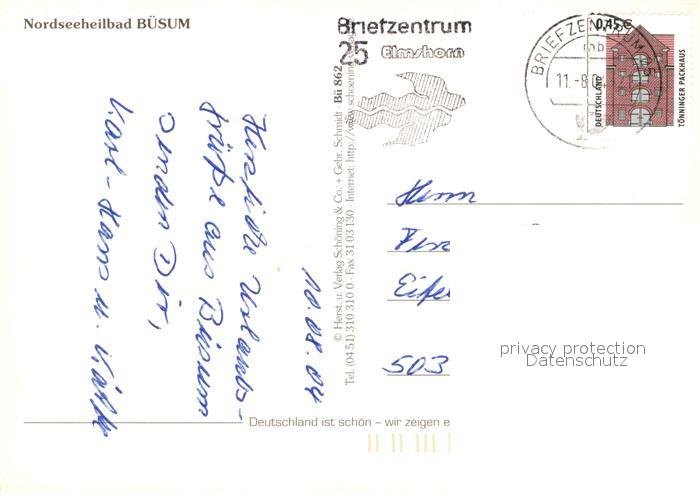 Nordseeheilbad BÜSUM
Briefzentrum
25 Elmshorn
BRIEFZENTRUM
mb
11.-8.0
0,45€
DEUTSCHLAND
TÖNNINGER PACKHAUS
© Herst. u. Verlag Schöning & Co. + Gebr. Schmidt · Bü 862
Tel. (04 51) 310 310 0 · Fax 31 03 130 · Internet: http://www.schoening
10.08.04
Herzliche Urlaubs-
grüße aus Büsum
senden Dir,
Karl-Hans u.
Herrn
Eife
503
privacy protection
Datenschutz
Deutschland ist schön – wir zeigen e